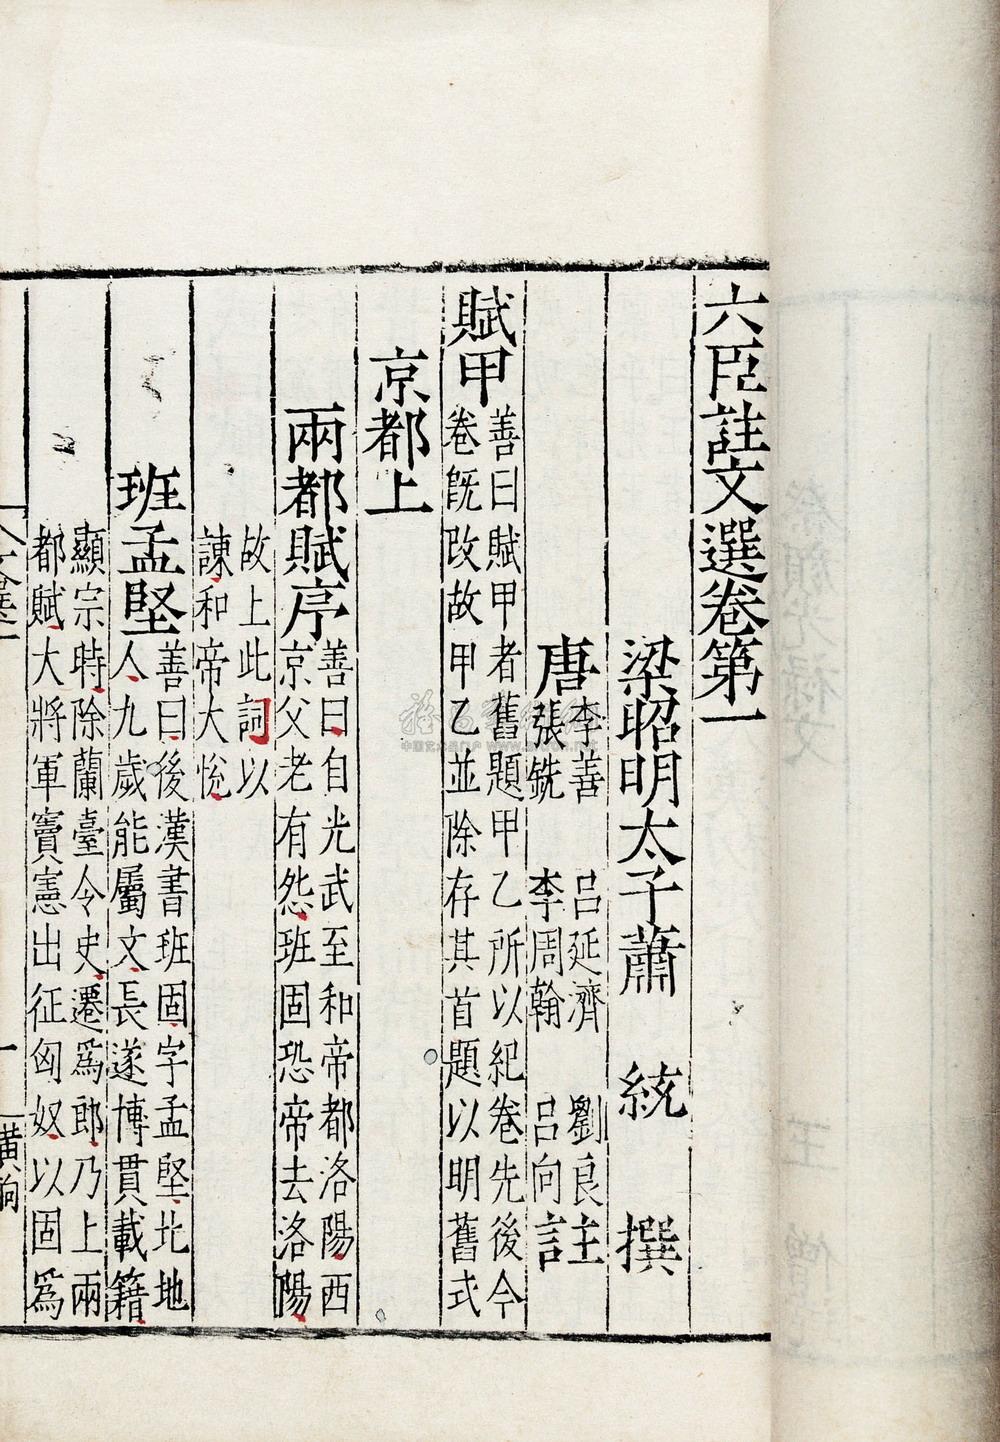 六臣註文選卷第一
梁昭明太子蕭統撰
唐
李善 呂延濟 劉良
張銑 李周翰 呂向
註
賦甲
善曰賦甲者舊題甲乙所以紀卷先後今
卷旣改故甲乙並除存其首題以明舊式
京都上
兩都賦序
善曰自光武至和帝都洛陽西
京父老有怨班固恐帝去洛陽
故上此詞以
諫和帝大悅
班孟堅
善曰後漢書班固字孟堅北地
人九歲能屬文長遂博貫載籍
顯宗時除蘭臺令史遷爲郎乃上兩
都賦大將軍竇憲出征匈奴以固爲